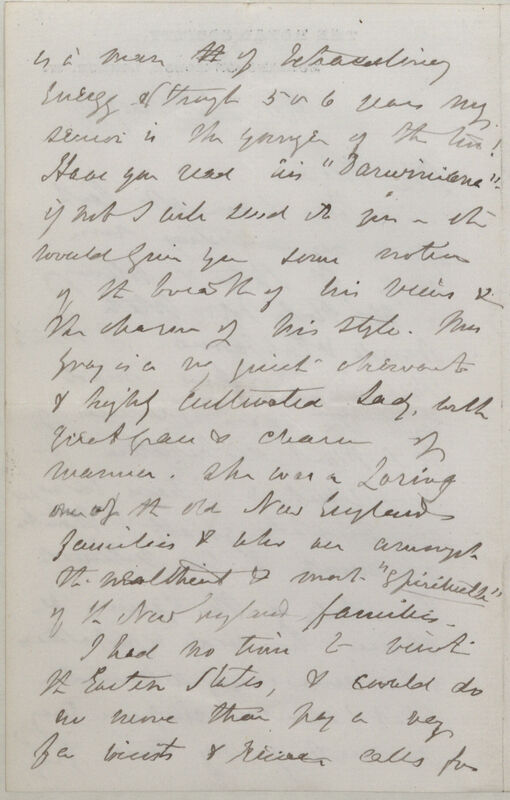 is a man of extraordinary
energy & though 5 or 6 years my
senior is the younger of the two!
Have you read his "Darwiniana"-
if not I will send it you - it
would give you some notion
of the breadth of his views &
the charm of his style. Mrs
Gray is a quiet observant
& highly cultivated Lady, with
great grace & charm of
manner. She was a Loring
one of the old New England
families & who are amongst
the wealthiest & most "spirituelle"
of the New England families.
I had no time to visit
the Eastern States, & could do
no more than pay a very
few visits & calls for